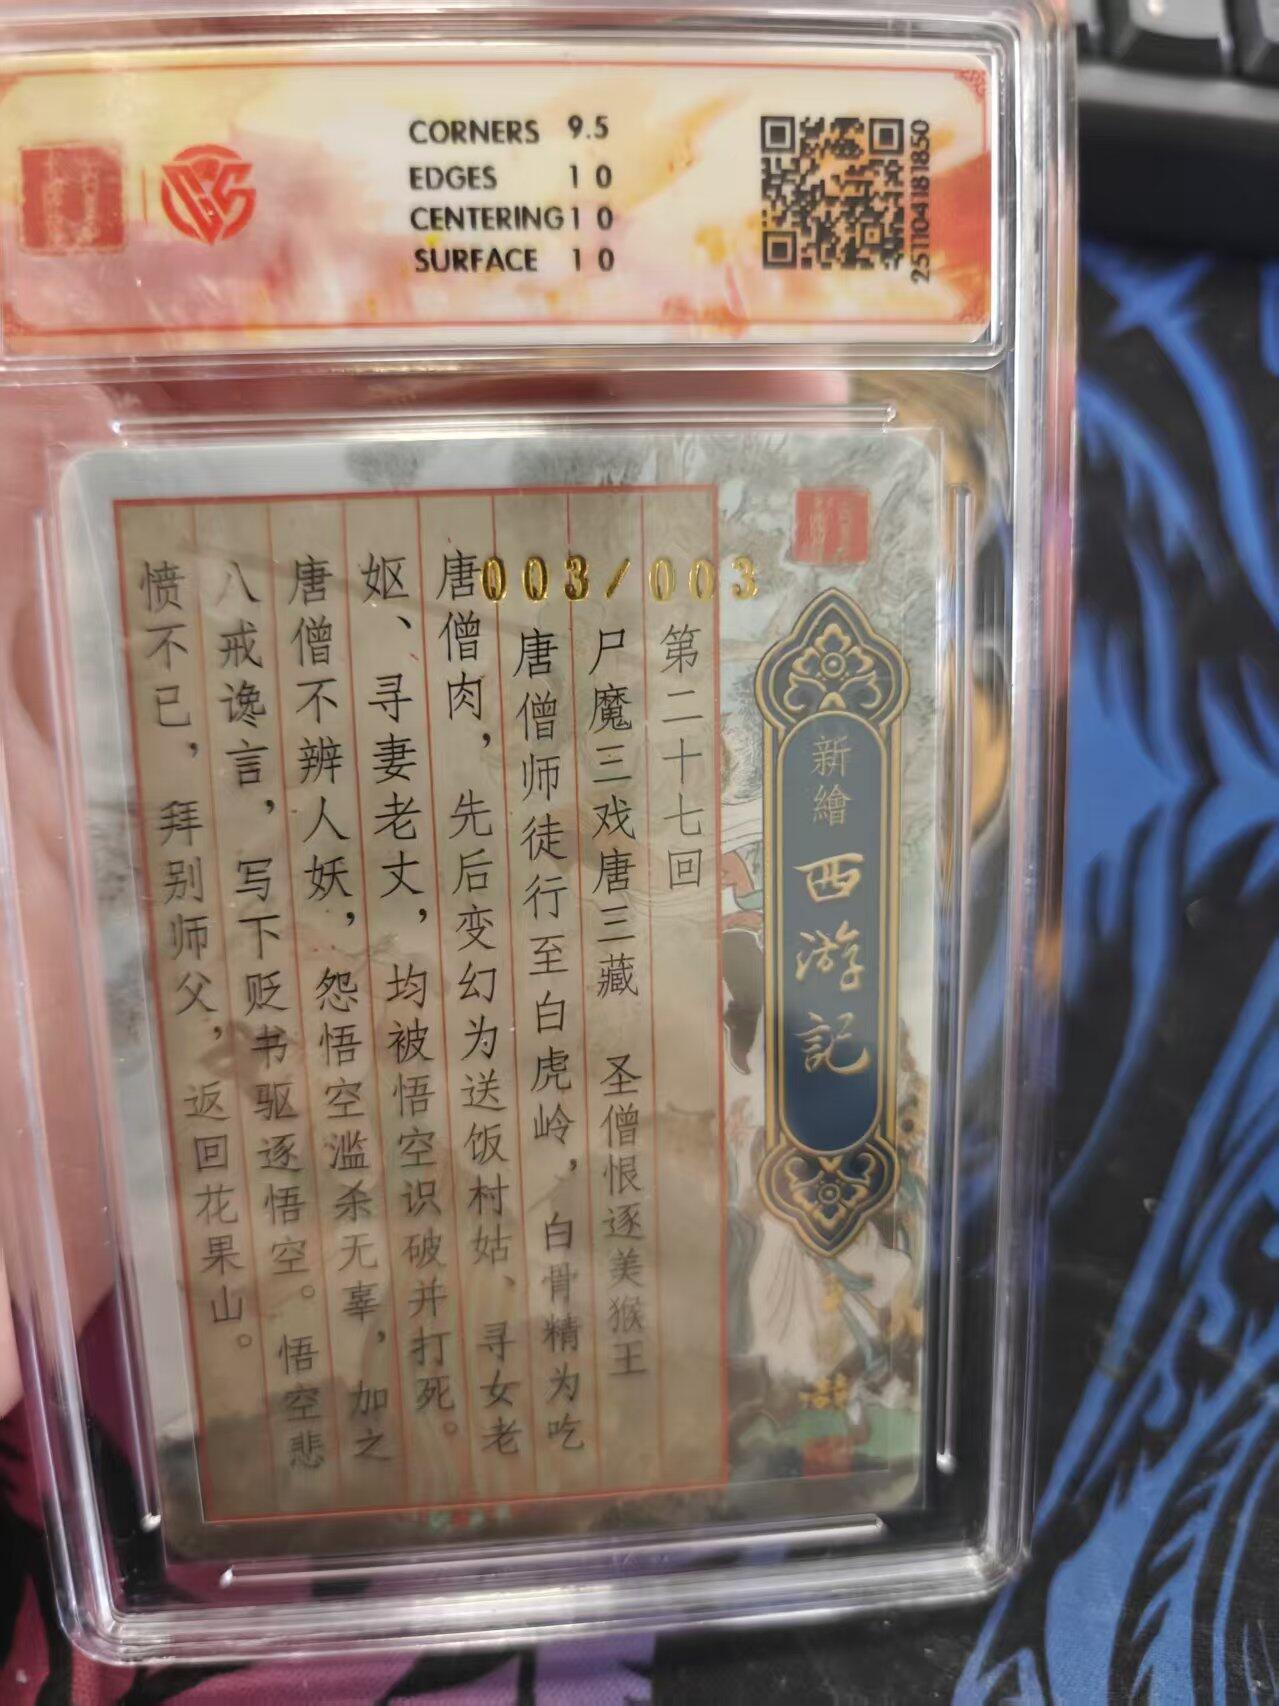 CORNERS 9.5
EDGES 10
CENTERING 10
SURFACE 10
251104181850
003/003
新繪西游記
第二十七回
尸魔三戏唐三藏 圣僧恨逐美猴王
唐僧师徒行至白虎岭，白骨精为吃
唐僧肉，先后变幻为送饭村姑、寻女老
妪、寻妻老丈，均被悟空识破并打死。
唐僧不辨人妖，怨悟空滥杀无辜，加之
八戒谗言，写下贬书驱逐悟空。悟空悲
愤不已，拜别师父，返回花果山。